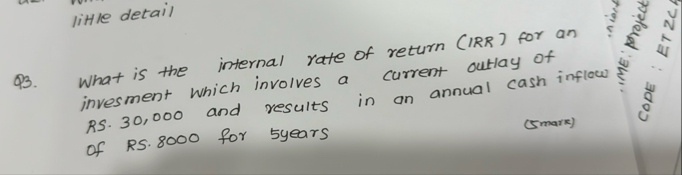 little detail
Q3. What is the internal rate of return (IRR) for an
invesment which involves a current outlay of
RS. 30,000 and results in an annual cash inflow
of RS. 8000 for 5years
(5mark)
IME: project
CODE : ET2C